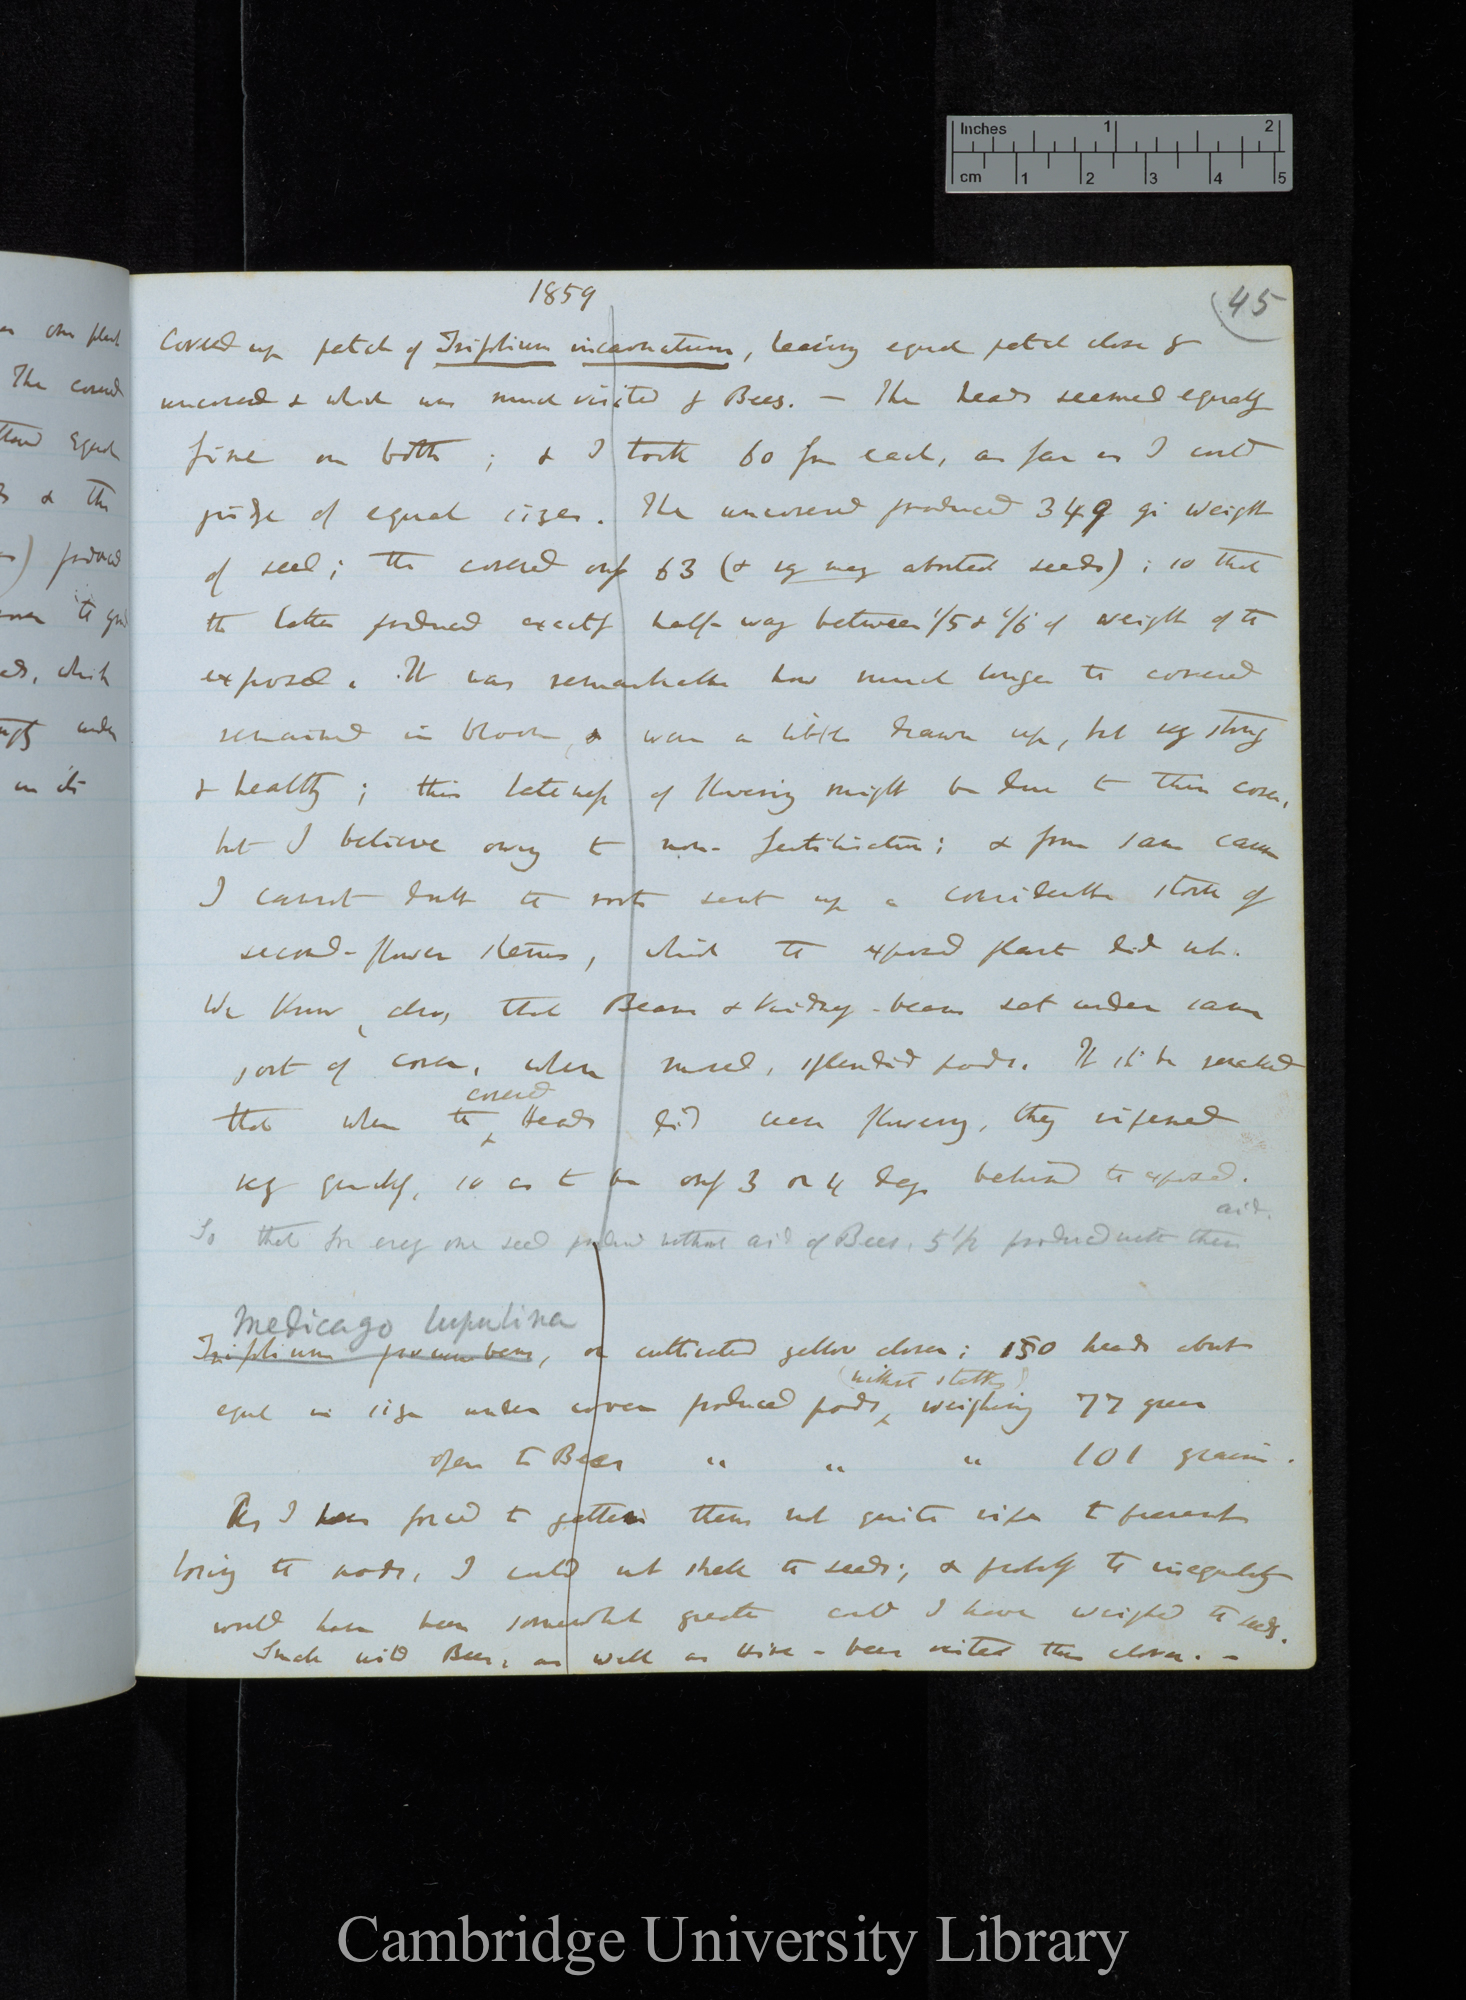 Inches 1 2
cm 1 2 3 4 5
1859
45
Covered up patch of Trifolium incarnatum, leaving equal patch close by
uncovered & which was much visited by Bees. — The heads seemed equally
fine on both; & I took 60 from each, as far as I could
judge of equal sizes. The uncovered produced 349 gr weight
of seed; the covered only 63 (& very many aborted seeds); so that
the latter produced exactly half-way between 1/5 & 1/6 of weight of the
exposed. It was remarkable how much longer the covered
remained in bloom, & were a little drawn up, but very strong
& healthy; this lateness of flowering might be due to their cover,
but I believe owing to non-fertilisation; & from same cause
I cannot doubt the roots sent up a considerable stock of
second-flower stems, which the exposed plant did not.
We know, also, that Beans & Kidney-beans set under same
sort of cover, when moved, splendid pods. It shd be remarked
that when the covered Heads did cease flowering, they ripened
very quickly, so as to be only 3 or 4 days behind the exposed.
So that for every one seed produced without aid of Bees, 5 1/2 produced with their aid.
Medicago lupulina
Trifolium procumbens, or cultivated yellow clover; 150 heads about
equal in size under cover produced pods (without stalks) weighing 77 grains
open to Bees " " " 101 grains.
As I was forced to gather them not quite ripe to prevent
losing the pods, I could not shell the seeds; & probably the inequality
would have been somewhat greater could I have weighed the seeds.
Small wild Bees, as well as Hive-bees visited this clover. —
on one plant
The covered
equal
& the
) produced
to
which
under
in its
Cambridge University Library